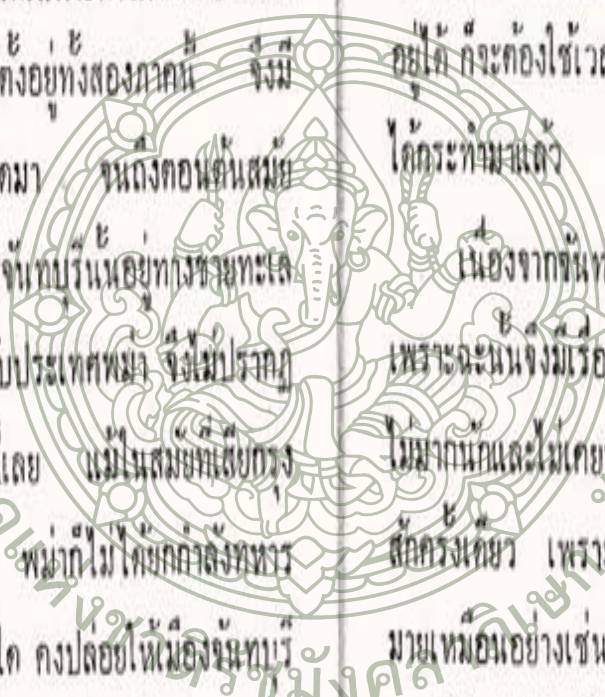 ตั้งอยู่ทั้งสองภาคนี้ จึงมี
ตมา จนถึงตอนต้นสมัย
จันทบุรีนั้นอยู่ทางชายทะเล
บประเทศพม่า จึงไม่ปรากฏ
เลย แม้ในสมัยที่เสียกรุง
พม่าก็ไม่ได้ยกกำลังทหาร
ใด คงปล่อยให้เมืองจันทบุรี
อยู่ได้ ก็จะต้องใช้เวล
ได้กระทำมาแล้ว
เนื่องจากจันท
เพราะฉะนั้นจึงมีเรื่อ
ไม่มากนักและไม่เคย
สักครั้งเดียว เพราะ
มายเหมือนอย่างเช่น